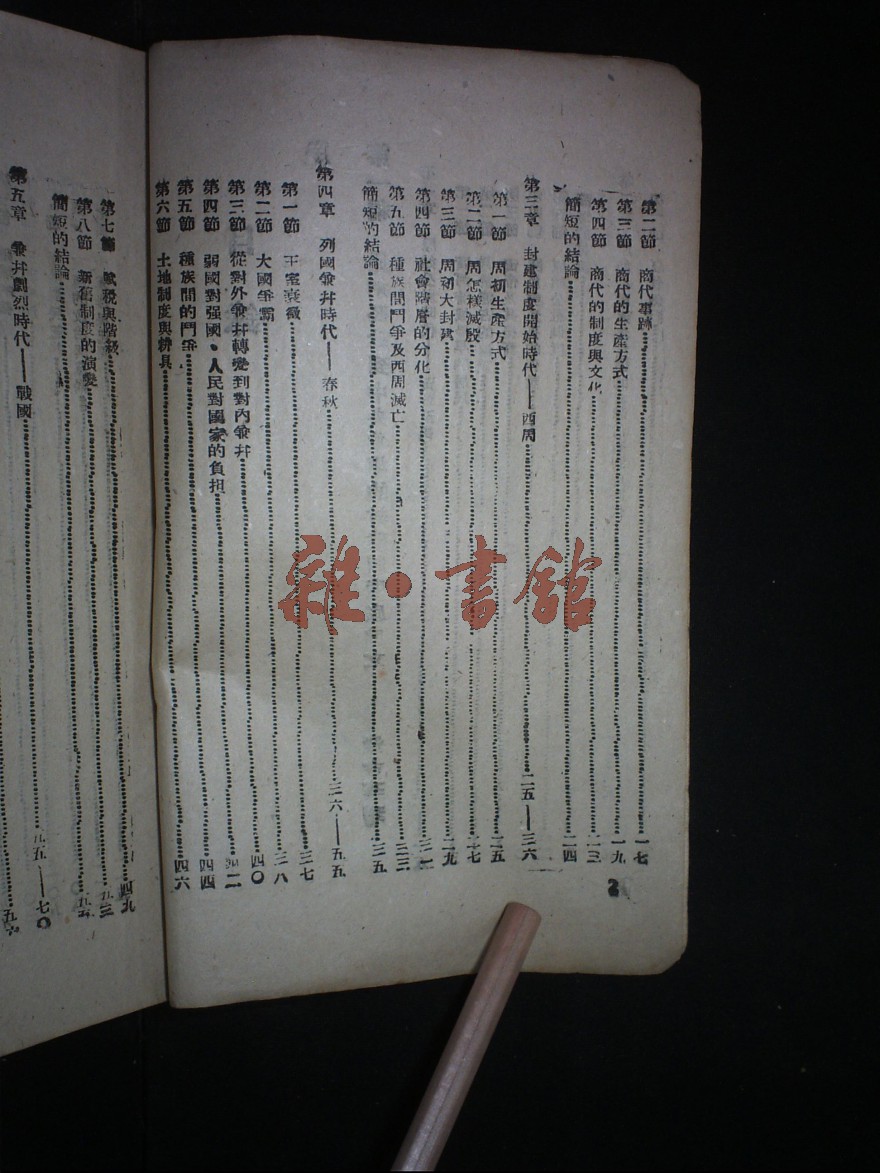 第二節 商代事跡……一七
第三節 商代的生產方式……一九
第四節 商代的制度與文化……二三
簡短的結論……二四
第三章 封建制度開始時代——西周……二五——三六
第一節 周初生產方式……二五
第二節 周怎樣滅殷……二七
第三節 周初大封建……二九
第四節 社會階層的分化……三一
第五節 種族間鬥爭及西周滅亡……三三
簡短的結論……三五
第四章 列國兼并時代——春秋……三六——五五
第一節 王室衰微……三七
第二節 大國爭霸……三八
第三節 從對外兼并轉變到對內兼并……四〇
第四節 弱國對强國·人民對國家的負担……四二
第五節 種族間的鬥爭……四四
第六節 土地制度與耕具……四六
2
第七節 賦税與階級……四九
第八節 新舊制度的演變……五三
簡短的結論……五五
第五章 兼并劇烈時代——戰國……五五——七〇
五六
雜·書館